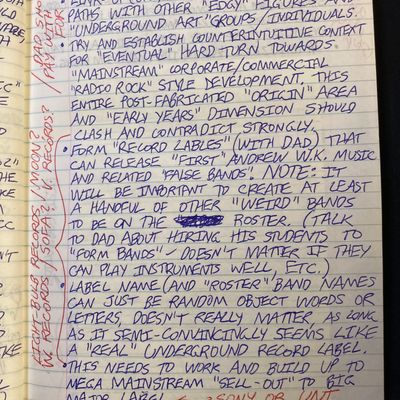 PATHS WITH OTHER "EDGY" FIGURES AND
"UNDERGROUND ART" GROUPS/INDIVIDUALS.
• TRY AND ESTABLISH COUNTERINTUITIVE CONTEXT
FOR "EVENTUAL" HARD TURN TOWARDS
"MAINSTREAM" CORPORATE/COMMERCIAL
"RADIO ROCK" STYLE DEVELOPMENT. THIS
ENTIRE POST-FABRICATED "ORIGIN" AREA
AND "EARLY YEARS" DIMENSION SHOULD
CLASH AND CONTRADICT STRONGLY.
• FORM "RECORD LABLES" (WITH DAD) THAT
CAN RELEASE "FIRST" ANDREW W.K. MUSIC
AND RELATED "FALSE BANDS". NOTE: IT
WILL BE IMPORTANT TO CREATE AT LEAST
A HANDFUL OF OTHER "WEIRD" BANDS
TO BE ON THE ROSTER. (TALK
TO DAD ABOUT HIRING HIS STUDENTS TO
"FORM BANDS" - DOESN'T MATTER IF THEY
CAN PLAY INSTRUMENTS WELL, ETC.)
• LABEL NAME (AND "ROSTER" BAND NAMES
CAN JUST BE RANDOM OBJECT WORDS OR
LETTERS, DOESN'T REALLY MATTER, AS LONG
AS IT SEMI-CONVINCINGLY SEEMS LIKE
A "REAL" UNDERGROUND RECORD LABEL.
• THIS NEEDS TO WORK AND BUILD UP TO
MEGA MAINSTREAM "SELL-OUT" TO BIG
MAJOR LABEL
SONY OR
LIGHT BULB RECORDS / MOON?
W. RECORDS / SOFA? V. RECORDS?
/ DAD
PAY WITH
FOR